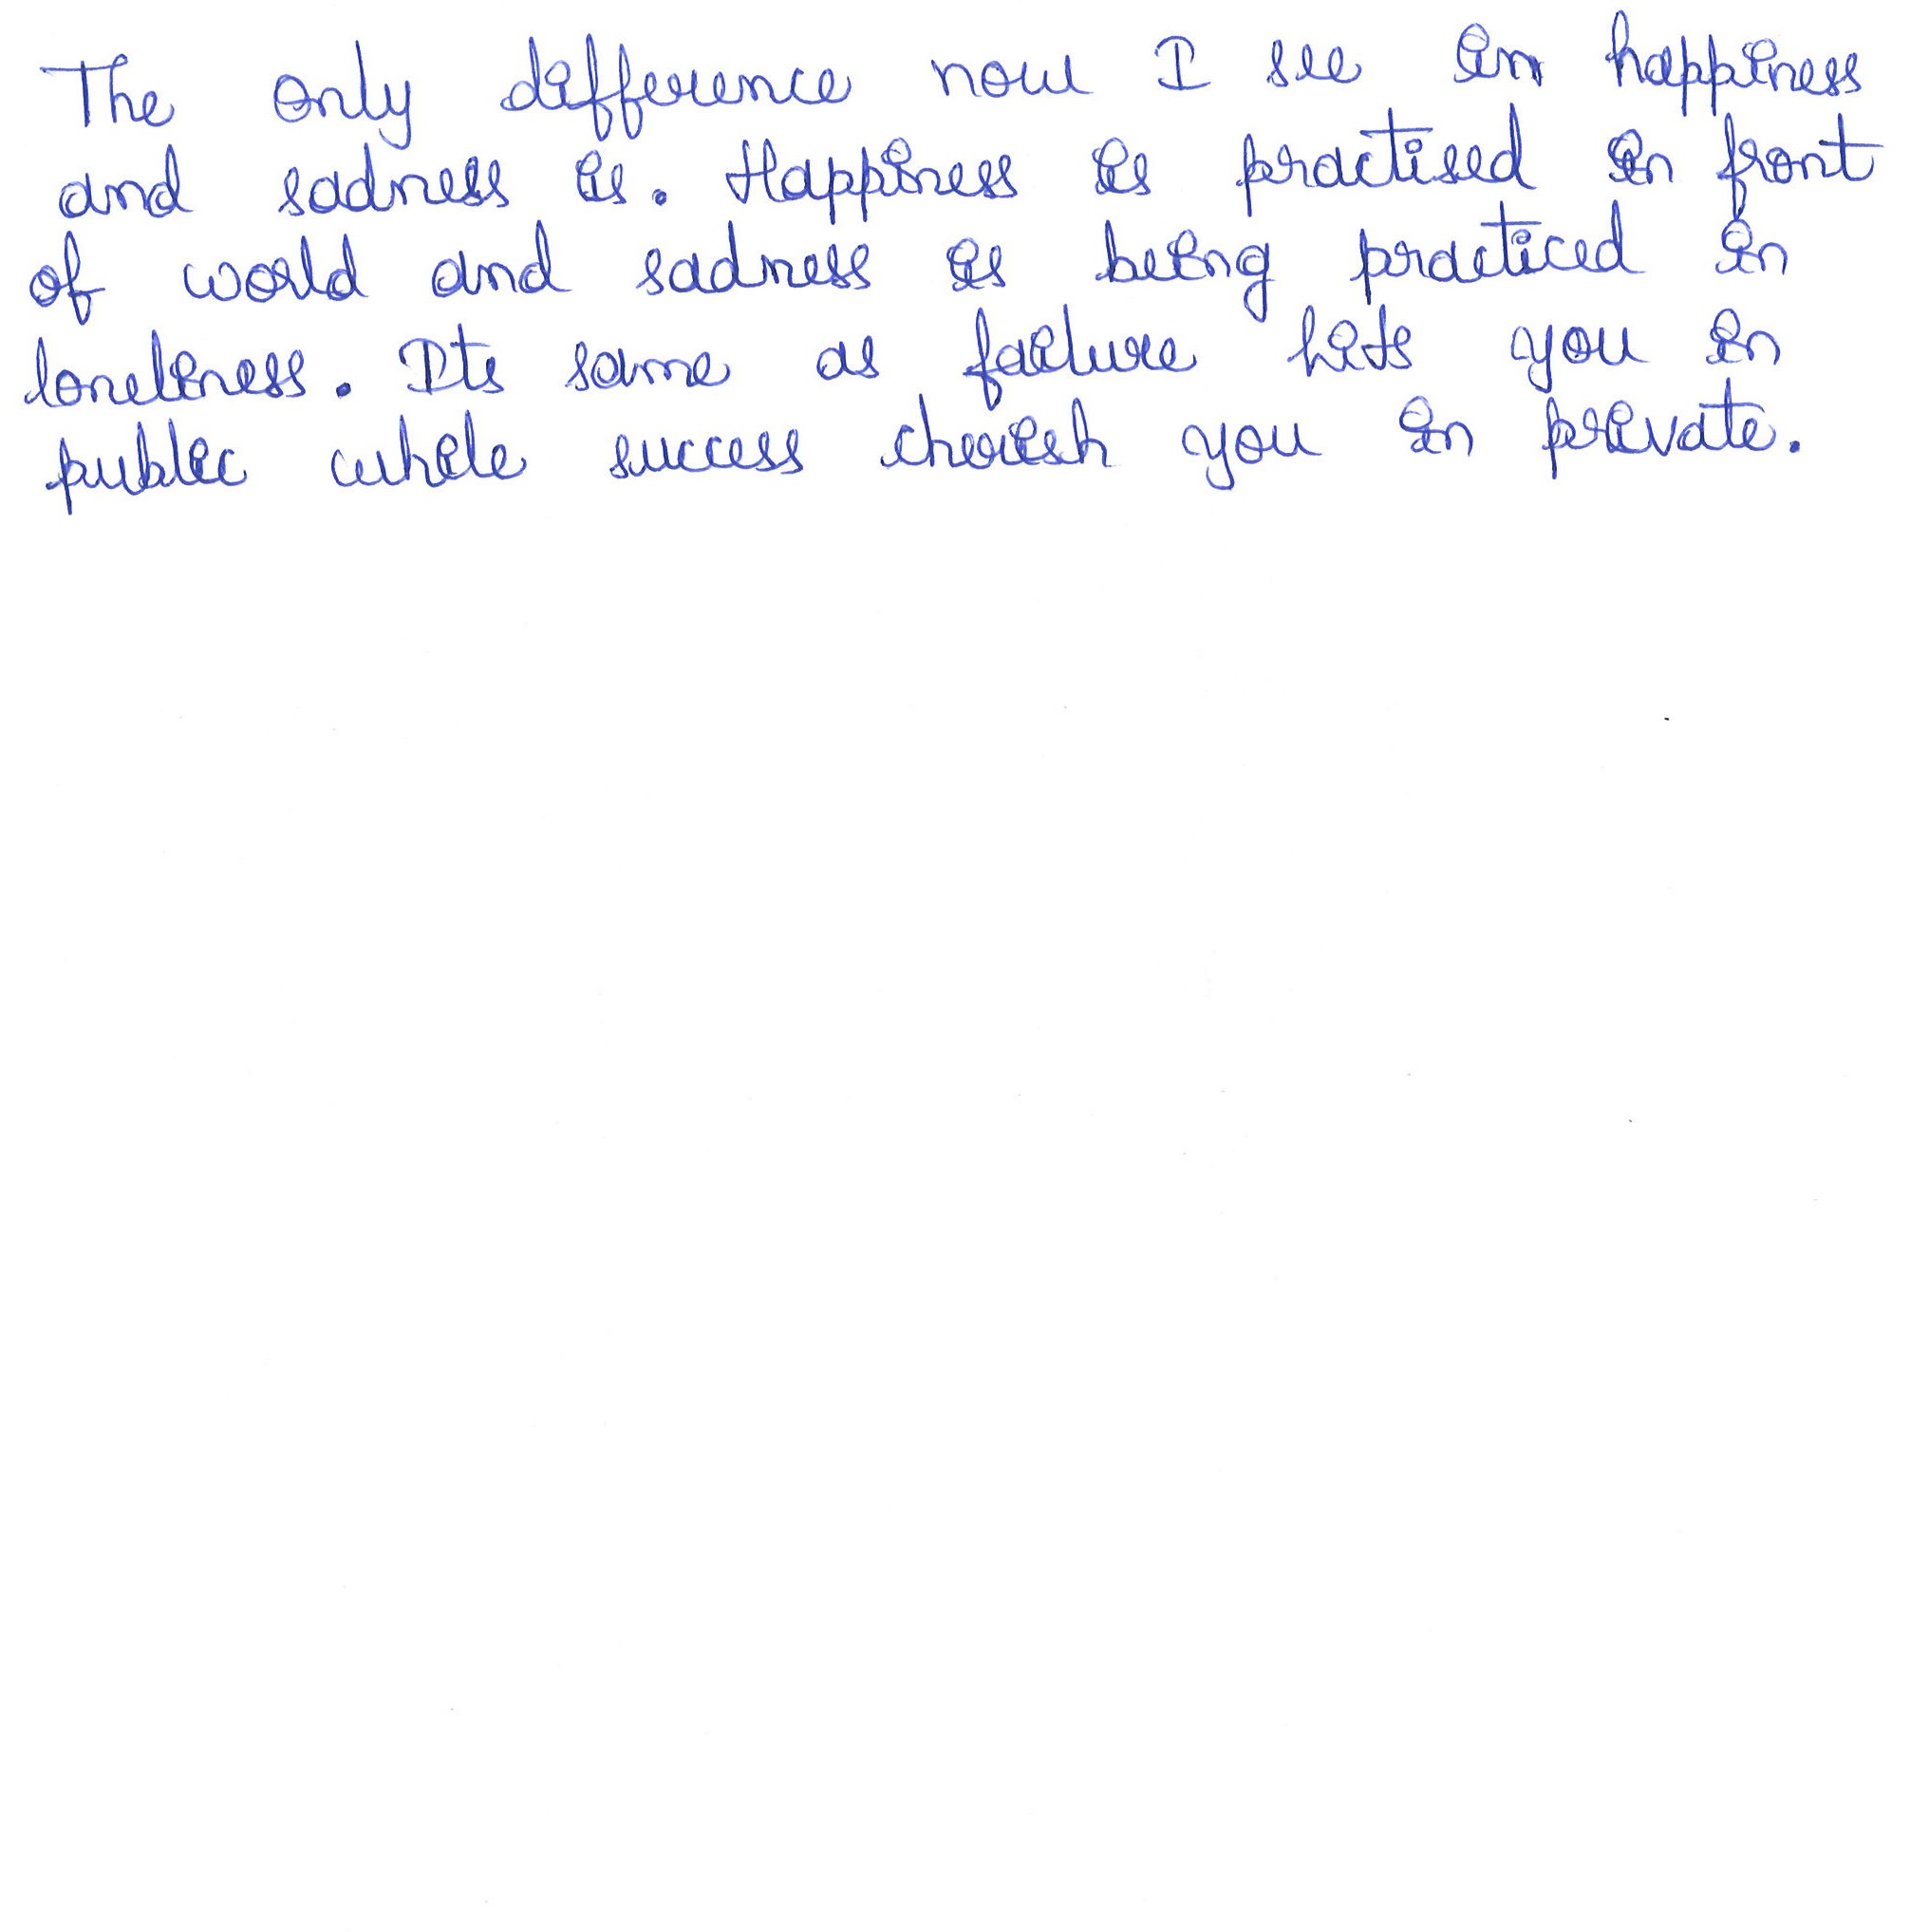 The only difference now I see in happiness
and sadness is. Happiness is practised in front
of world and sadness is being practiced in
loneliness. Its same as failure hits you in
public while success cherish you in private.